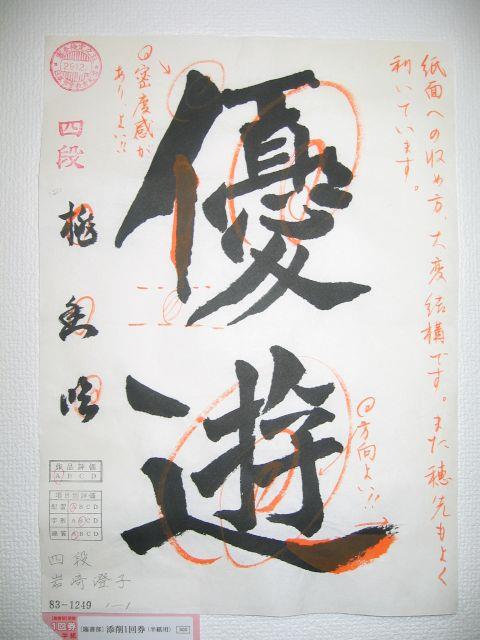 紙面への収め方、大変結構です。また穂先もよく
利いています。
優遊
◎密度感が
あり、よい!!
◎方向よい!!
四段
作品評価
ABCD
項目別評価
配置 ABCD
字形 ABCD
線質 ABCD
四段
岩崎澄子
83-1249
1-1
1回券
半紙
〔臨書部〕添削1回券(半紙用)